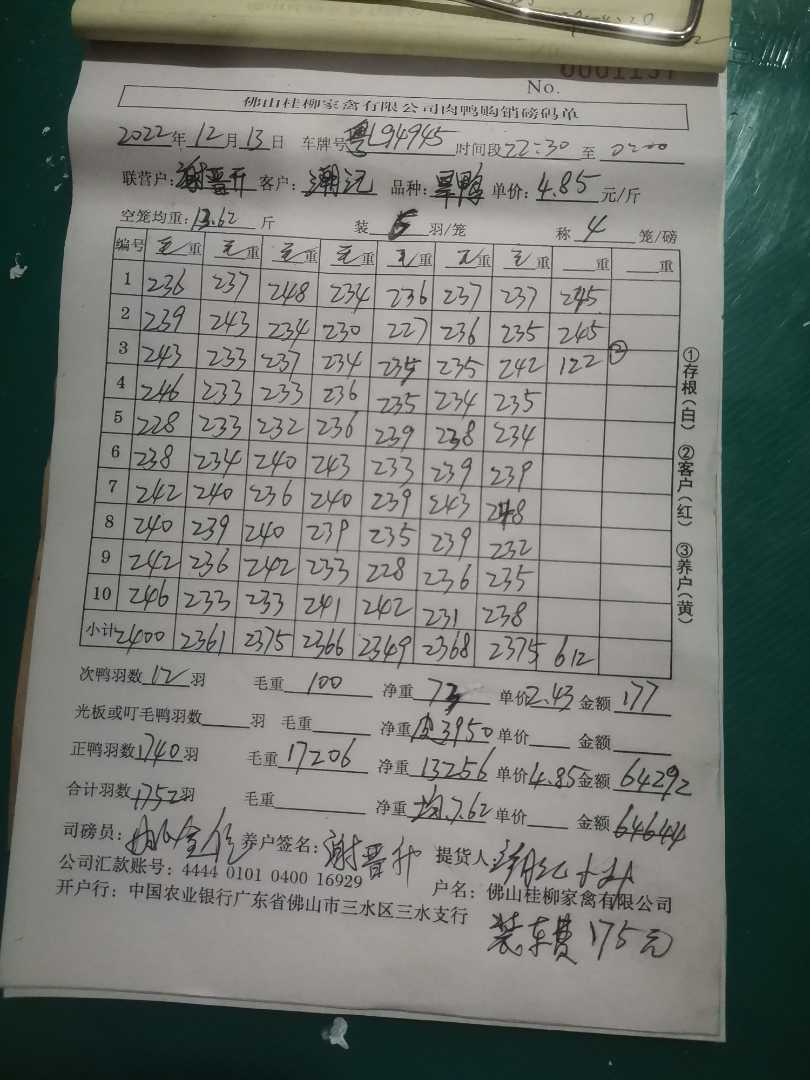 No. 0001137
佛山桂柳家禽有限公司肉鸭购销磅码单
2022年12月13日 车牌号粤L94945 时间段22:30至0:00
联营户:谢晋升 客户:潮记 品种:旱鸭 单价:4.85元/斤
空笼均重:13.62斤 装 羽/笼 称4笼/磅
编号 毛重 毛重 毛重 毛重 毛重 毛重 毛重 重 重
1 236 237 248 234 236 237 237 245
2 239 243 234 230 227 236 235 245
3 243 233 237 234 235 235 242 122 ②
4 246 233 233 236 235 234 235
5 228 233 232 236 239 238 234
6 238 234 240 243 233 239 239
7 242 240 236 240 239 243 248
8 240 239 240 239 235 239 232
9 242 236 242 233 228 236 235
10 246 233 233 241 242 231 238
小计 2400 2361 2375 2366 2349 2368 2375 612
①存根(白) ②客户(红) ③养户(黄)
次鸭羽数12羽 毛重100 净重73 单价2.43 金额177
光板或叮毛鸭羽数 羽 毛重 净重皮3950 单价 金额
正鸭羽数1740羽 毛重17206 净重13256 单价4.85 金额64292
合计羽数1752羽 毛重 净重均7.62 单价 金额64644
司磅员: 养户签名:谢晋升 提货人:
公司汇款账号:4444 0101 0400 16929 户名:佛山桂柳家禽有限公司
开户行:中国农业银行广东省佛山市三水区三水支行
装车费175元